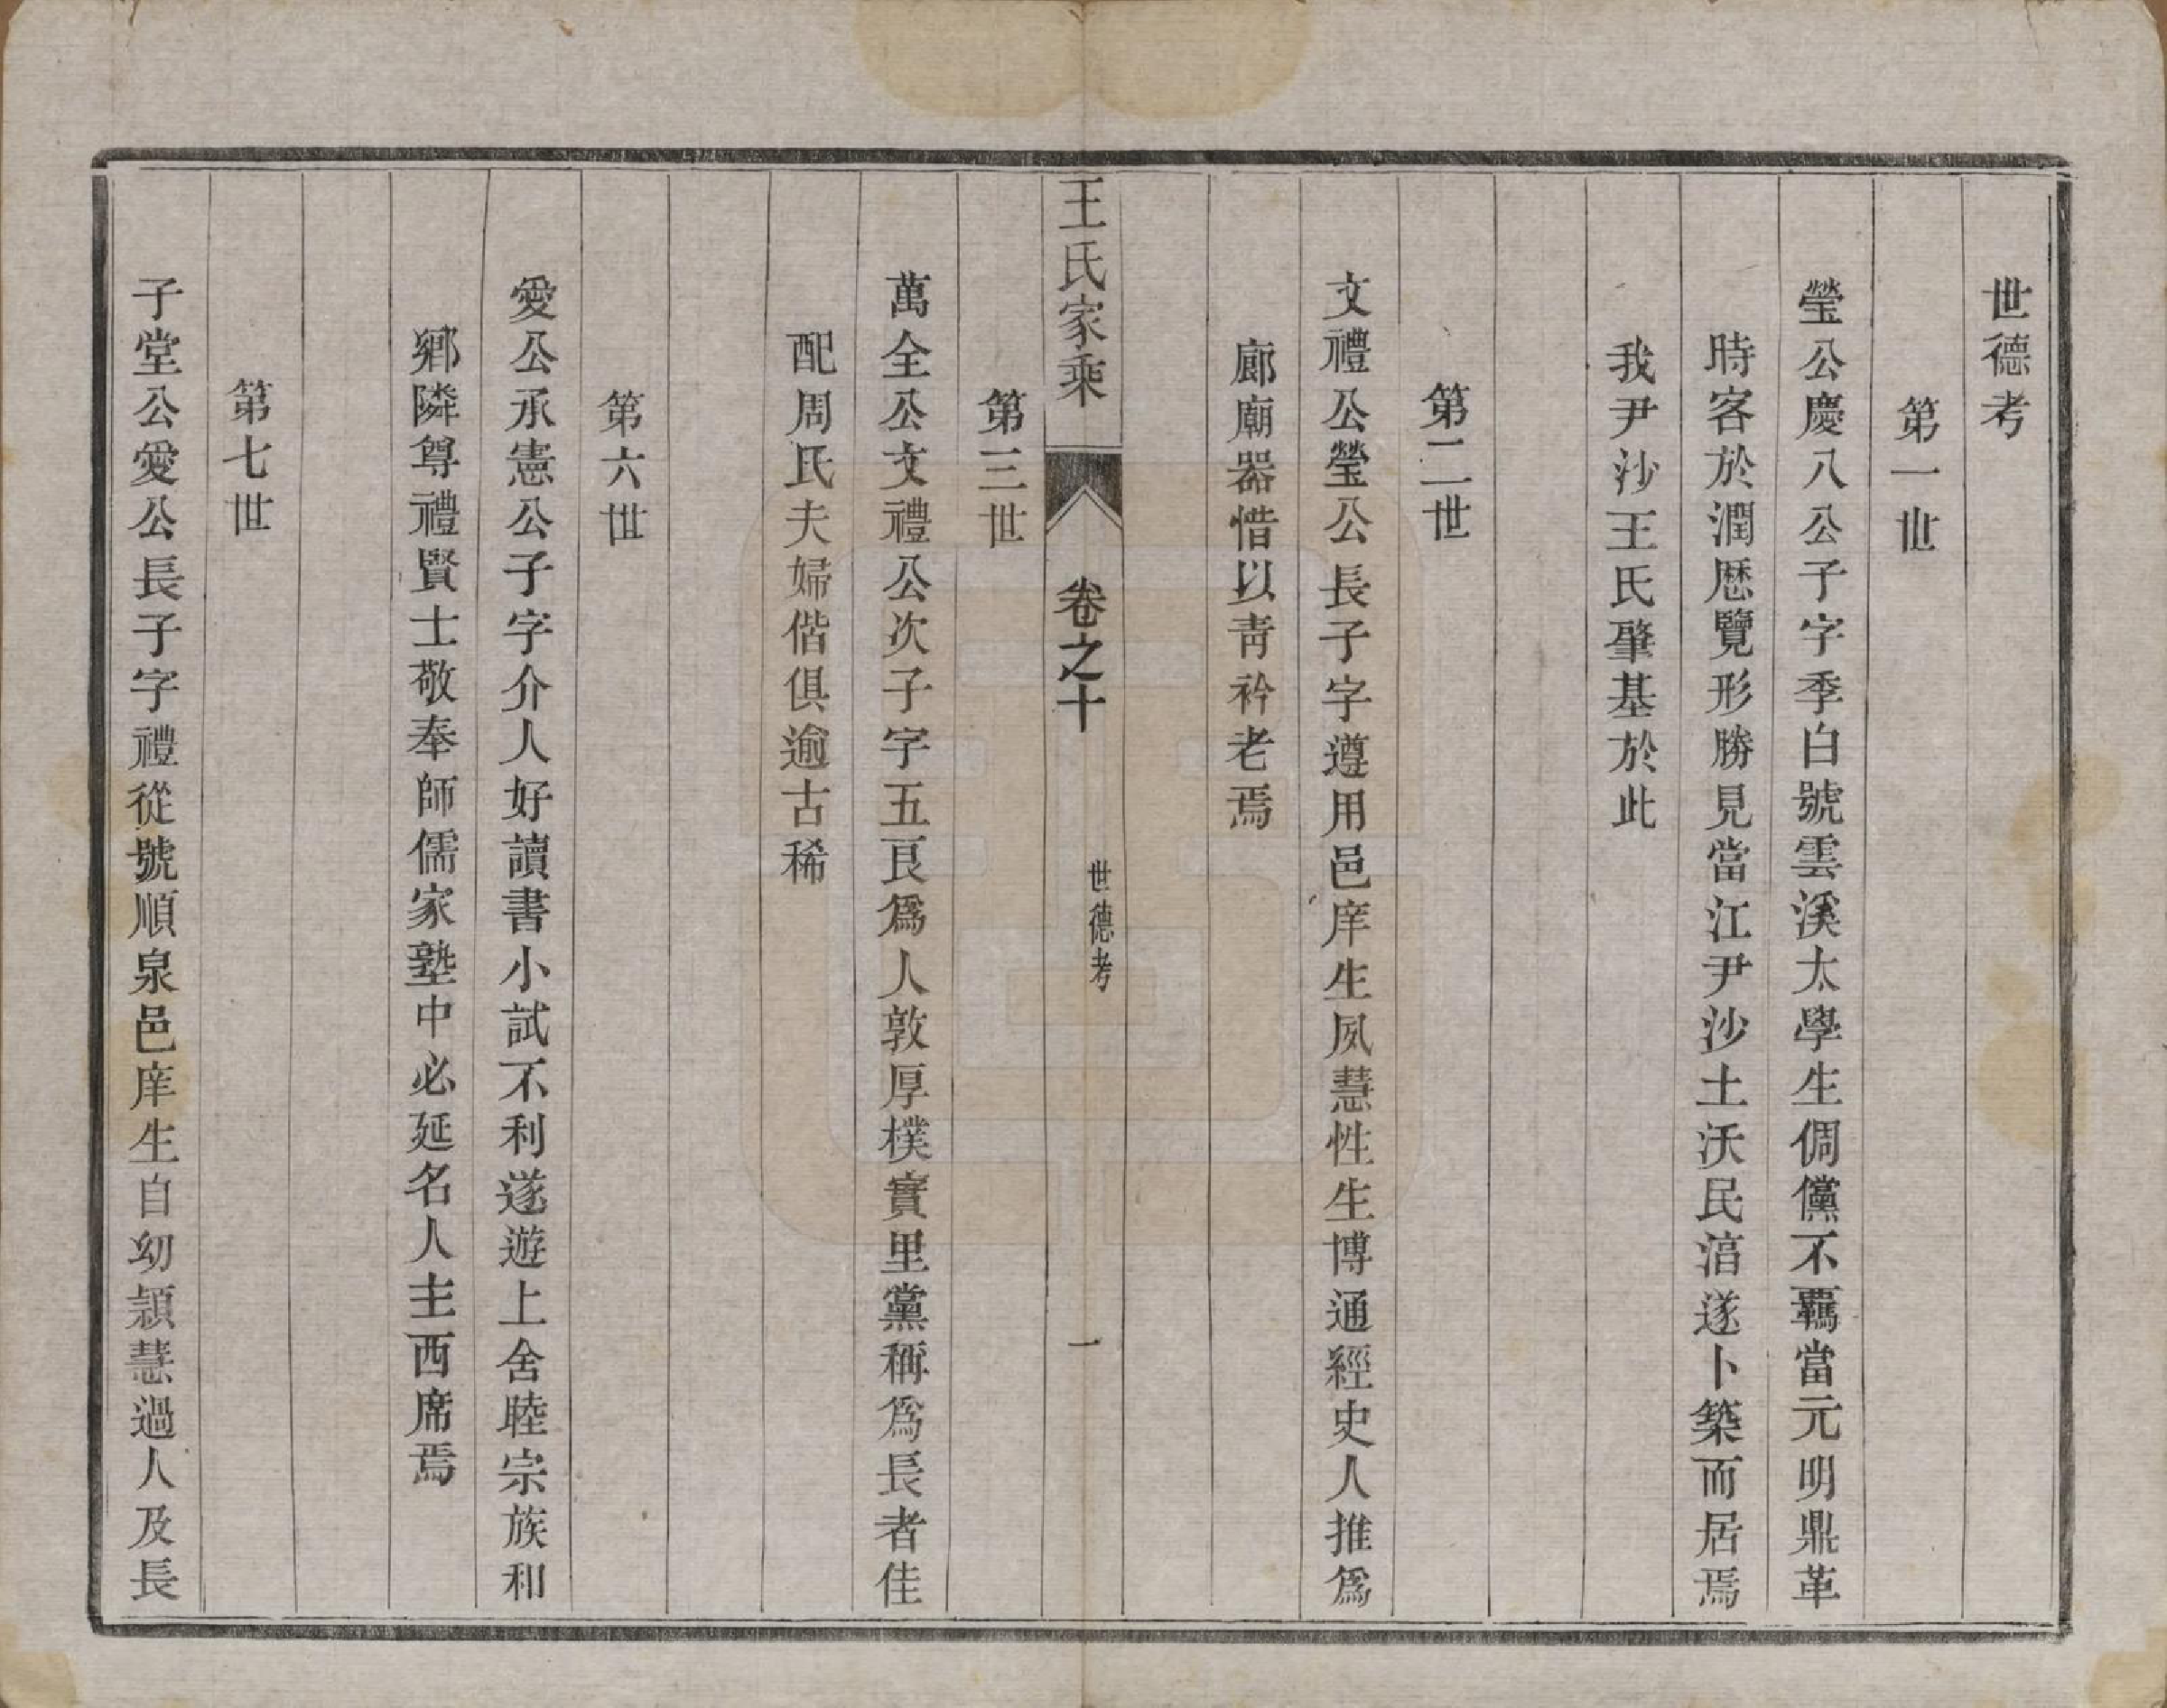 世德考
第一世
瑩公慶八公子字季白號雲溪太學生倜儻不羈當元明鼎革
時客於潤歷覽形勝見當江尹沙土沃民湻遂卜築而居焉
我尹沙王氏肇基於此
第二世
文禮公瑩公長子字遵用邑庠生夙慧性生博通經史人推爲
廊廟器惜以靑衿老焉
王氏家乘
卷之十
世德考
一
第三世
萬全公文禮公次子字五艮爲人敦厚樸實里黨稱爲長者佳
配周氏夫婦偕俱逾古稀
第六世
愛公承憲公子字介人好讀書小試不利遂遊上舍睦宗族和
鄉隣尊禮賢士敬奉師儒家塾中必延名人主西席焉
第七世
子堂公愛公長子字禮從號順泉邑庠生自幼頴慧過人及長